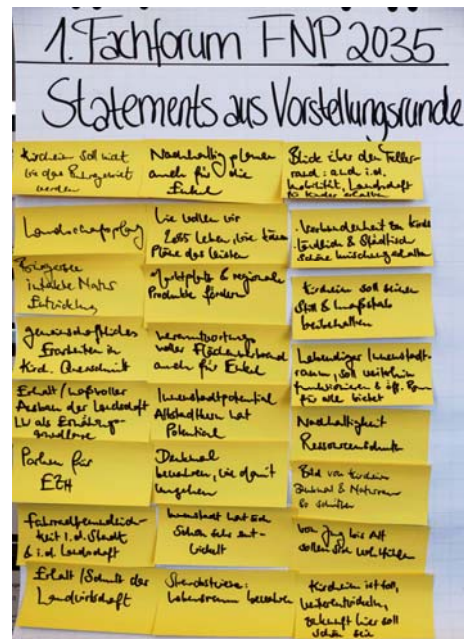 1. Fachforum FNP 2035
Statements aus Vorstellungsrunde
Kirchheim soll nicht
wie das Ruhrgebiet
werden
Landschaftsplan
Bürgersee
intakte Natur
Entwicklung
gemeinschaftliches
Erarbeiten im
Kirch. Querschnitt
Erhalt / maßvoller
Ausbau der Landschaft
LW als Ernährungs-
grundlage
Parken für
EZH
Fahrradfreundlich-
keit i.d. Stadt
& i.d. Landschaft
Erhalt / Schutz der
Landwirtschaft
Nachhaltig planen
auch für die
Enkel
Wie wollen wir
2035 leben, wie können
Pläne das leisten
Marktplatz & regionale
Produkte fördern
verantwortungs
voller Flächenverbrand
auch für Enkel
Innenstadtpotential
Altstadtkern hat
Potential
Denkmal
bewahren, wie damit
umgehen
Innenstadt hat sich
schon sehr ent-
wickelt
Lebensraum bewahren
Blick über den Teller-
rand: auch i.d.
Mobilität, Landschaft
für Kinder erhalten
Verbundenheit zu
ländlich & Städtisch
schöne Mischung erhalten
Kirchheim soll seinen
Stil & Maßstab
beibehalten
Lebendiger Innenstadt-
raum, soll weiterhin
funktionieren & öff. Raum
für alle bietet
Nachhaltigkeit
Ressourcenschutz
Bild von Kirchheim
Denkmal & Naturraum
zu schützen
Von Jung bis Alt
sollen sich wohlfühlen
Kirchheim ist toll,
weiterentwickeln,
Zukunft hier soll
schön sein